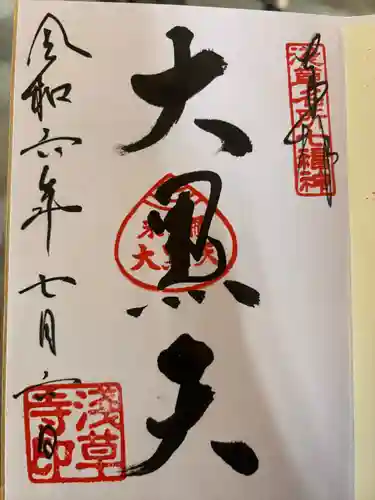 奉拝
浅草名所七福神
大黒天
米櫃
大黒天
令和六年七月六日
浅草
寺印